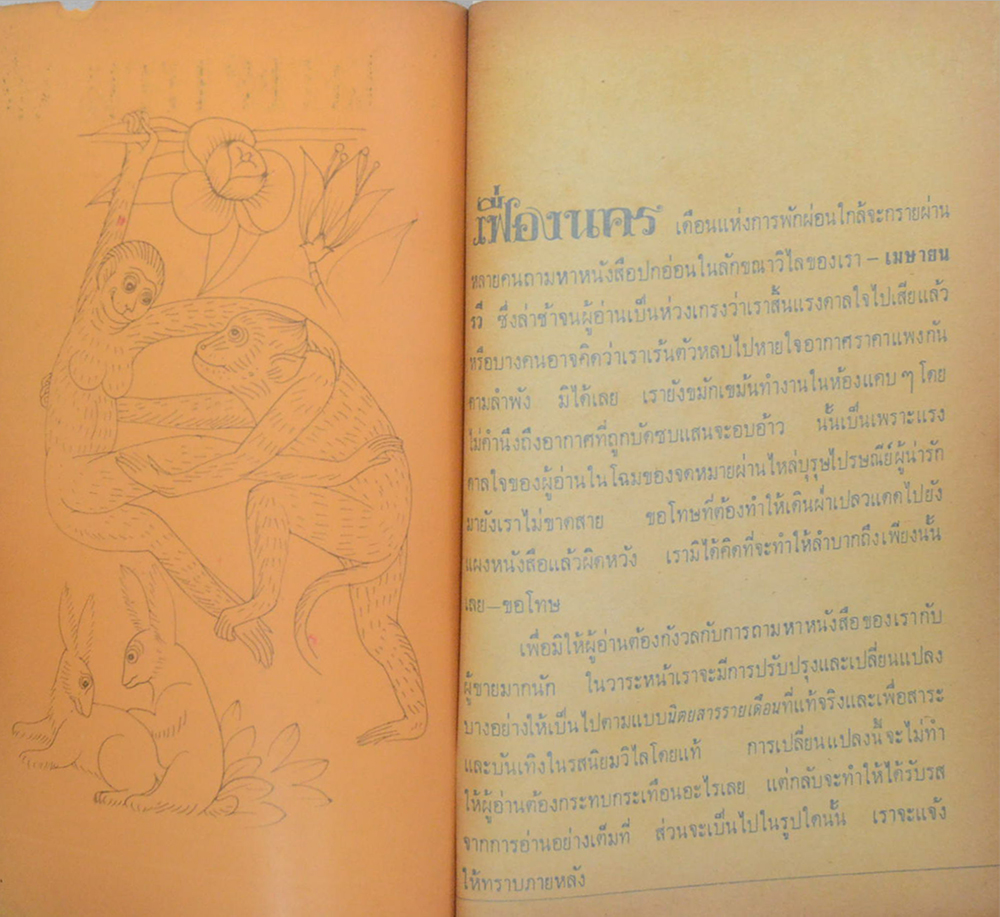 เฟื่องนคร เดือนแห่งการพักผ่อนใกล้จะกรายผ่าน
หลายคนถามหาหนังสือปกอ่อนในลักขณาวิไลของเรา – เมษายน
รวี ซึ่งล่าช้าจนผู้อ่านเป็นห่วงเกรงว่าเราสิ้นแรงดาลใจไปเสียแล้ว
หรือบางคนอาจคิดว่าเราเร้นตัวหลบไปหายใจอากาศราคาแพงกัน
ตามลำพัง มิได้เลย เรายังขมักเขม้นทำงานในห้องแคบ ๆ โดย
ไม่คำนึงถึงอากาศที่ถูกบัดซบแสนจะอบอ้าว นั้นเป็นเพราะแรง
ดาลใจของผู้อ่านในโฉมของจดหมายผ่านไหล่บุรุษไปรษณีย์ผู้น่ารัก
มายังเราไม่ขาดสาย ขอโทษที่ต้องทำให้เดินฝ่าเปลวแดดไปยัง
แผงหนังสือแล้วผิดหวัง เรามิได้คิดที่จะทำให้ลำบากถึงเพียงนั้น
เลย–ขอโทษ
เพื่อมิให้ผู้อ่านต้องกังวลกับการถามหาหนังสือของเรากับ
ผู้ขายมากนัก ในวาระหน้าเราจะมีการปรับปรุงและเปลี่ยนแปลง
บางอย่างให้เป็นไปตามแบบนิตยสารรายเดือนที่แท้จริงและเพื่อสาระ
และบันเทิงในรสนิยมวิไลโดยแท้ การเปลี่ยนแปลงนี้จะไม่ทำ
ให้ผู้อ่านต้องกระทบกระเทือนอะไรเลย แต่กลับจะทำให้ได้รับรส
จากการอ่านอย่างเต็มที่ ส่วนจะเป็นไปในรูปใดนั้น เราจะแจ้ง
ให้ทราบภายหลัง